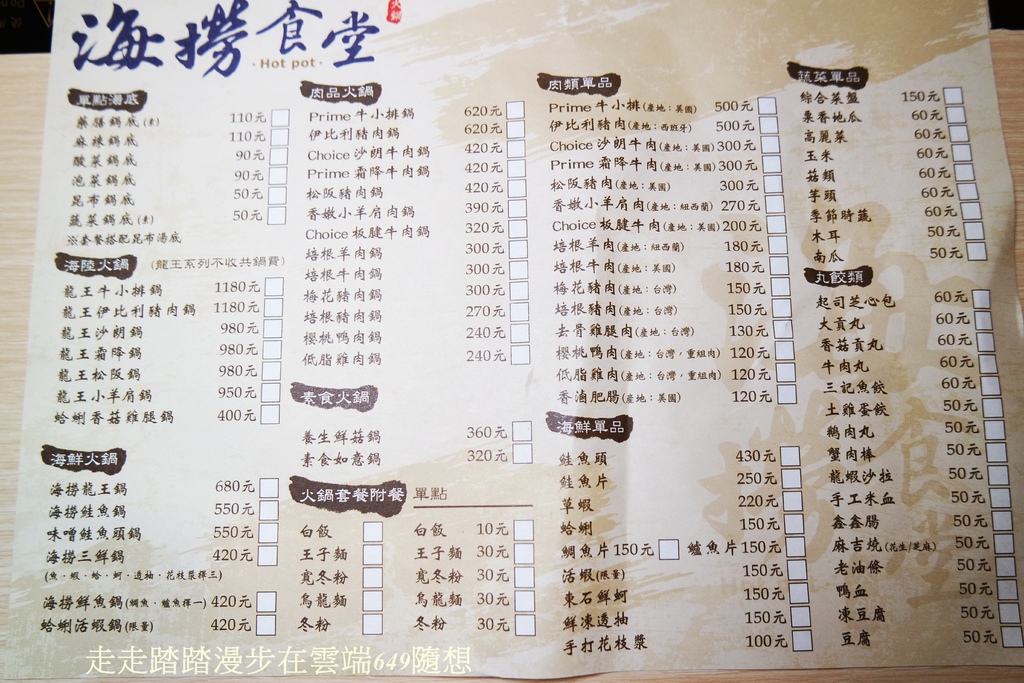 海撈食堂
火鍋
·Hot pot·
單點湯底
藥膳鍋底(素) 110元
麻辣鍋底 110元
酸菜鍋底 90元
泡菜鍋底 90元
昆布鍋底 50元
蔬菜鍋底(素) 50元
※套餐搭配昆布湯底
海陸火鍋 (龍王系列不收共鍋費)
龍王牛小排鍋 1180元
龍王伊比利豬肉鍋 1180元
龍王沙朗鍋 980元
龍王霜降鍋 980元
龍王松阪鍋 980元
龍王小羊肩鍋 950元
蛤蜊香菇雞腿鍋 400元
海鮮火鍋
海撈龍王鍋 680元
海撈鮭魚鍋 550元
味噌鮭魚頭鍋 550元
海撈三鮮鍋 420元
(魚·蝦·蛤·蚵·透抽·花枝漿擇三)
海撈鮮魚鍋(鯛魚·鱸魚擇一) 420元
蛤蜊活蝦鍋(限量) 420元
肉品火鍋
Prime牛小排鍋 620元
伊比利豬肉鍋 620元
Choice沙朗牛肉鍋 420元
Prime霜降牛肉鍋 420元
松阪豬肉鍋 420元
香嫩小羊肩肉鍋 390元
Choice板腱牛肉鍋 320元
培根羊肉鍋 300元
培根牛肉鍋 300元
梅花豬肉鍋 300元
培根豬肉鍋 270元
櫻桃鴨肉鍋 240元
低脂雞肉鍋 240元
素食火鍋
養生鮮菇鍋 360元
素食如意鍋 320元
火鍋套餐附餐 單點
白飯 白飯 10元
王子麵 王子麵 30元
寬冬粉 寬冬粉 30元
烏龍麵 烏龍麵 30元
冬粉 冬粉 30元
肉類單品
Prime牛小排(產地:美國) 500元
伊比利豬肉(產地:西班牙) 500元
Choice沙朗牛肉(產地:美國) 300元
Prime霜降牛肉(產地:美國) 300元
松阪豬肉(產地:美國) 300元
香嫩小羊肩肉(產地:紐西蘭) 270元
Choice板腱牛肉(產地:美國) 200元
培根羊肉(產地:紐西蘭) 180元
培根牛肉(產地:美國) 180元
梅花豬肉(產地:台灣) 150元
培根豬肉(產地:台灣) 150元
去骨雞腿肉(產地:台灣) 130元
櫻桃鴨肉(產地:台灣,重組肉) 120元
低脂雞肉(產地:台灣,重組肉) 120元
香滷肥腸(產地:美國) 120元
海鮮單品
鮭魚頭 430元
鮭魚片 250元
草蝦 220元
蛤蜊 150元
鯛魚片150元 鱸魚片150元
活蝦(限量) 150元
東石鮮蚵 150元
鮮凍透抽 150元
手打花枝漿 100元
蔬菜單品
綜合菜盤 150元
栗香地瓜 60元
高麗菜 60元
玉米 60元
菇類 60元
芋頭 60元
季節時蔬 60元
木耳 50元
南瓜 50元
丸餃類
起司芝心包 60元
大貢丸 60元
香菇貢丸 60元
牛肉丸 60元
三記魚餃 60元
土雞蛋餃 50元
鵝肉丸 50元
蟹肉棒 50元
龍蝦沙拉 50元
手工米血 50元
鑫鑫腸 50元
麻吉燒(花生/芝麻) 50元
老油條 50元
鴨血 50元
凍豆腐 50元
豆腐 50元
走走踏踏漫步在雲端649隨想